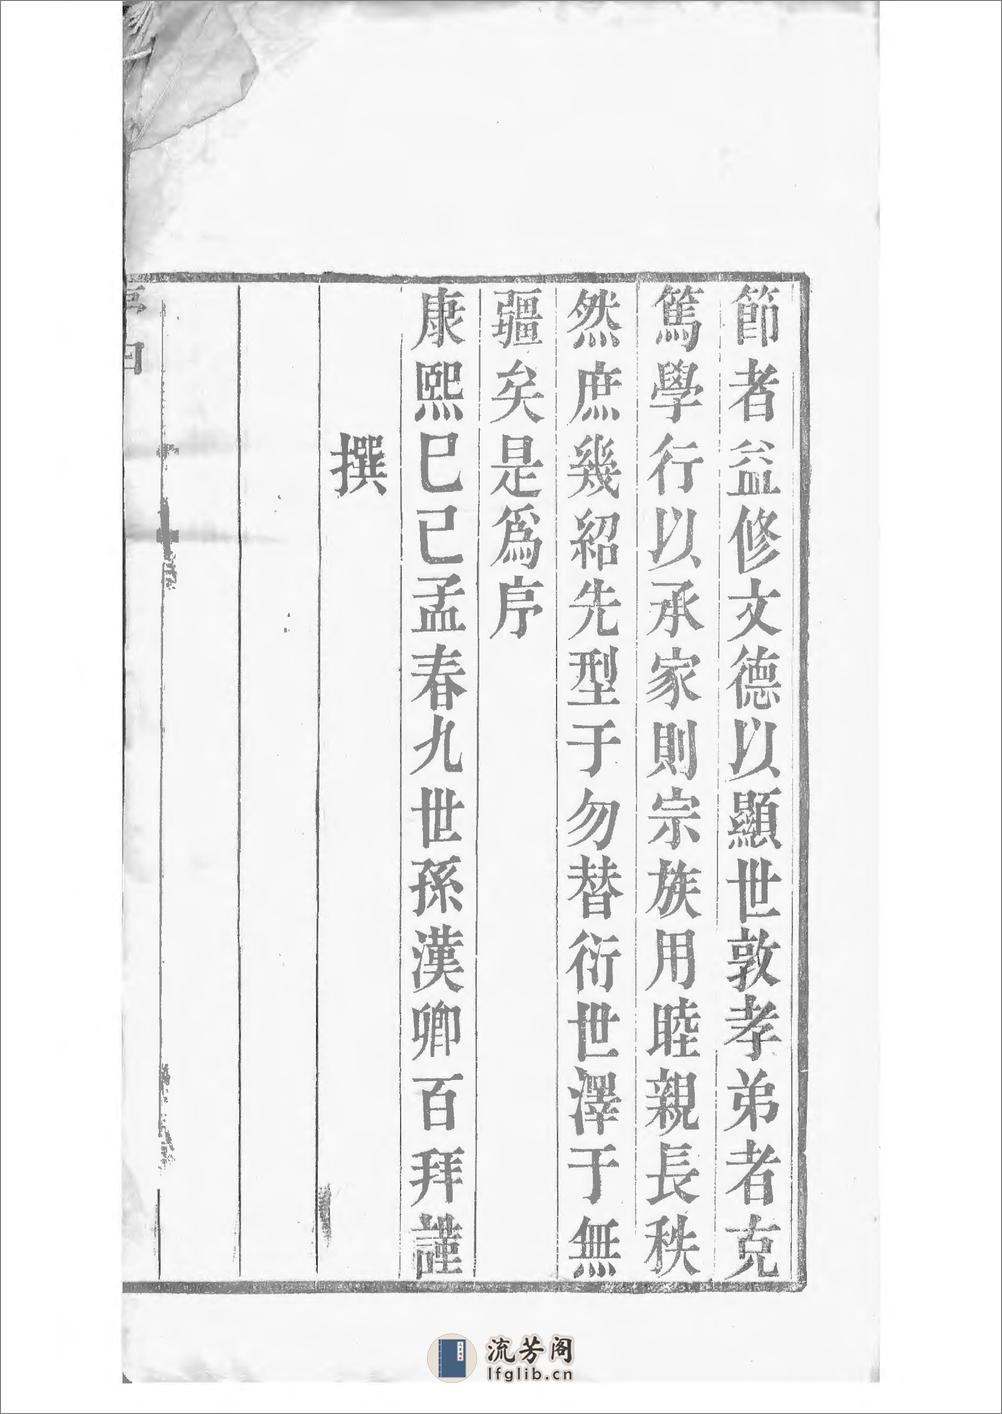 節者益修文德以顯世敦孝弟者克
篤學行以承家則宗族用睦親長秩
然庶幾紹先型于勿替衍世澤于無
疆矣是為序
康熙巳己孟春九世孫漢卿百拜謹
撰
流芳阁
lfglib.cn